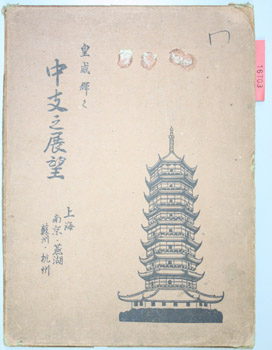 皇威輝く
中支之展望
上海
南京・蕪湖
蘇州・杭州
16703